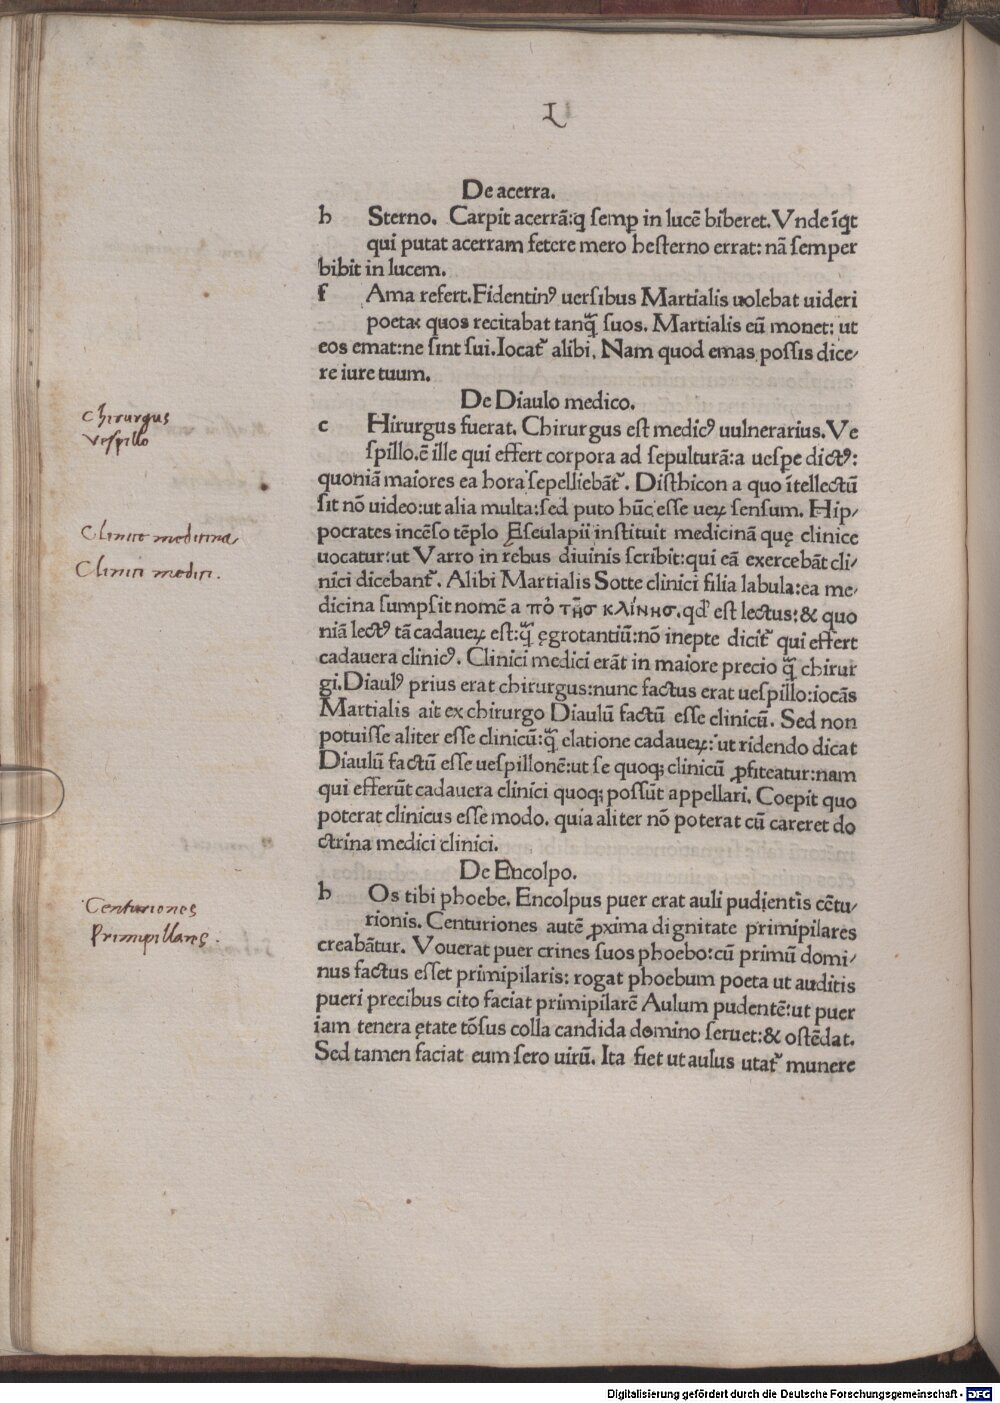 L
De acerra.
h Sterno. Carpit acerrã:q semꝑ in lucẽ biberet. Vnde ĩqt
qui putat acerram fetere mero hesterno errat: nã semper
bibit in lucem.
f Ama refert. Fidentinꝰ uersibus Martialis uolebat uideri
poeta: quos recitabat tanq̃ suos. Martialis eũ monet: ut
eos emat:ne sint sui. Iocat᷑ alibi. Nam quod emas possis dice/
re iure tuum.
Chirurgus
Vespillo
De Diaulo medico.
c Hirurgus fuerat. Chirurgus est medicꝰ uulnerarius. Ve
spillo.ẽ ille qui effert corpora ad sepulturã:a uespe dictꝰ:
quoniã maiores ea hora sepelliebãt᷑. Disthicon a quo ĩtellectũ
sit nõ uideo:ut alia multa:sed puto hũc esse ueꝝ sensum. Hip/
Clinice medicina
Clinici medici.
pocrates incẽso tẽplo Ęsculapii instituit medicinã quę clinice
uocatur:ut Varro in rebus diuinis scribit:qui eã exercebãt cli/
nici dicebant᷑. Alibi Martialis Sotte clinici filia labula:ea me/
dicina sumpsit nomẽ a πὸ τῆσ κλίνησ.qd̛ est lectus:& quo
niã lectꝰ tã cadaueꝝ est:q̃ ęgrotantiũ:nõ inepte dicit᷑ qui effert
cadauera clinicꝰ. Clinici medici erãt in maiore precio q̃ chirur
gi. Diaulꝰ prius erat chirurgus:nunc factus erat uespillo:iocãs
Martialis ait ex chirurgo Diaulũ factũ esse clinicũ. Sed non
potuisse aliter esse clinicũ:q̃ elatione cadaueꝝ: ut ridendo dicat
Diaulũ factũ esse uespillonẽ:ut se quoqꝫ clinicũ ꝓfiteatur:nam
qui efferũt cadauera clinici quoqꝫ possũt appellari. Coepit quo
poterat clinicus esse modo. quia aliter nõ poterat cũ careret do
ctrina medici clinici.
De Encolpo.
Centuriones
Primipillares.
h Os tibi phoebe. Encolpus puer erat auli pudẽntis cẽtu/
rionis. Centuriones autẽ ꝓxima dignitate primipilares
creabãtur. Vouerat puer crines suos phoebo:cũ primũ domi/
nus factus esset primipilaris: rogat phoebum poeta ut auditis
pueri precibus cito faciat primipilarẽ Aulum pudentẽ:ut puer
iam tenera ętate tõsus colla candida domino seruet:& ostẽdat.
Sed tamen faciat eum sero uirũ. Ita fiet ut aulus utat᷑ munere
Digitalisierung gefördert durch die Deutsche Forschungsgemeinschaft - DFG